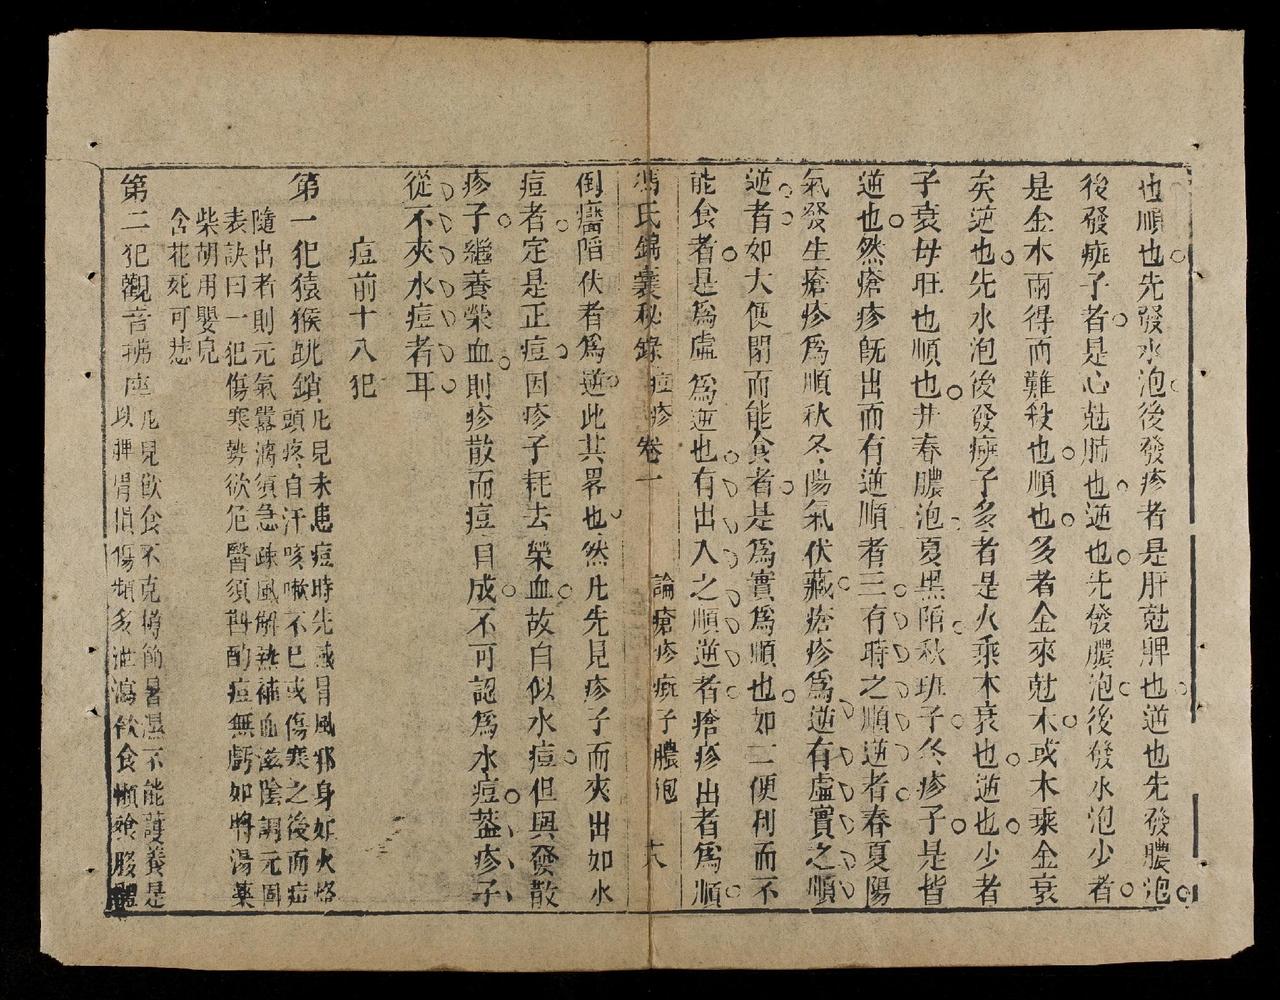 也順也先發水泡後發疹者是肝尅脾也逆也先發膿泡
後發痲子者是心尅肺也逆也先發膿泡後發水泡少者
是金木兩得而難殺也順也多者金來尅木或木乘金衰
矣逆也先水泡後發痲子多者是火乘木衰也逆也少者
子衰母旺也順也并春膿泡夏黑陷秋班子冬疹子是皆
逆也然瘡疹既出而有逆順者三有時之順逆者春夏陽
氣發生瘡疹爲順秋冬陽氣伏藏瘡疹爲逆有虛實之順
逆者如大便閉而能食者是爲實爲順也如二便利而不
能食者是爲虛爲逆也有出入之順逆者瘡疹出者爲順
馮氏錦囊秘錄 痘疹卷一 論瘡疹疣子膿泡 十八
倒靨陷伏者爲逆此其畧也然凡先見疹子而夾出如水
痘者定是正痘因疹子耗去榮血故白似水痘但與發散
疹子繼養榮血則疹散而痘自成不可認爲水痘蓋疹子
從不夾水痘者耳
痘前十八犯
第一犯猿猴跳鎖凡見未患痘時先感冒風邪身如火烙
頭疼自汗咳嗽不已或傷寒之後而痘
隨出者則元氣囂漓須急疎風解熱補血滋陰調元固
表訣曰一犯傷寒勢欲危醫須斟酌痘無虧如將湯藥
柴胡用嬰兒
含花死可悲
第二犯觀音攧座凡見飲食不克撙節暑濕不能護養是
以脾胃俱傷頻多泄瀉飲食懶飡腹